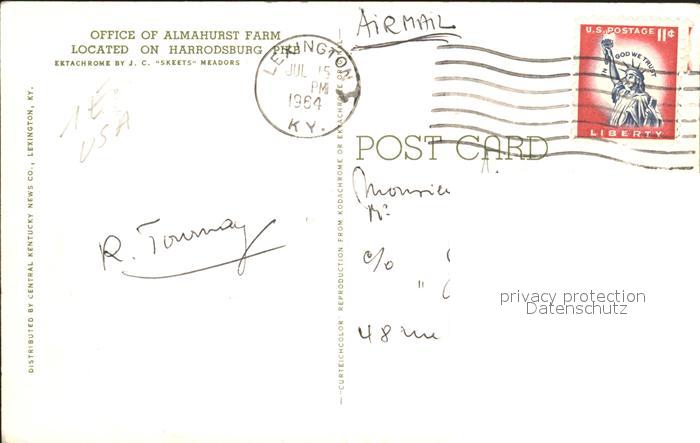 OFFICE OF ALMAHURST FARM
LOCATED ON HARRODSBURG PIKE
EKTACHROME BY J. C. "SKEETS" MEADORS
USA
DISTRIBUTED BY CENTRAL KENTUCKY NEWS CO., LEXINGTON, KY.
R. Tournay
"CURTEICHCOLOR" REPRODUCTION FROM KODACHROME OR EKTACHROME OR
AIRMAIL
LEXINGTON
JUL 15
PM
1964
KY.
U.S. POSTAGE 11¢
IN GOD WE TRUST
LIBERTY
POST CARD
Monsieu
c/o
"
48 rue
privacy protection
Datenschutz